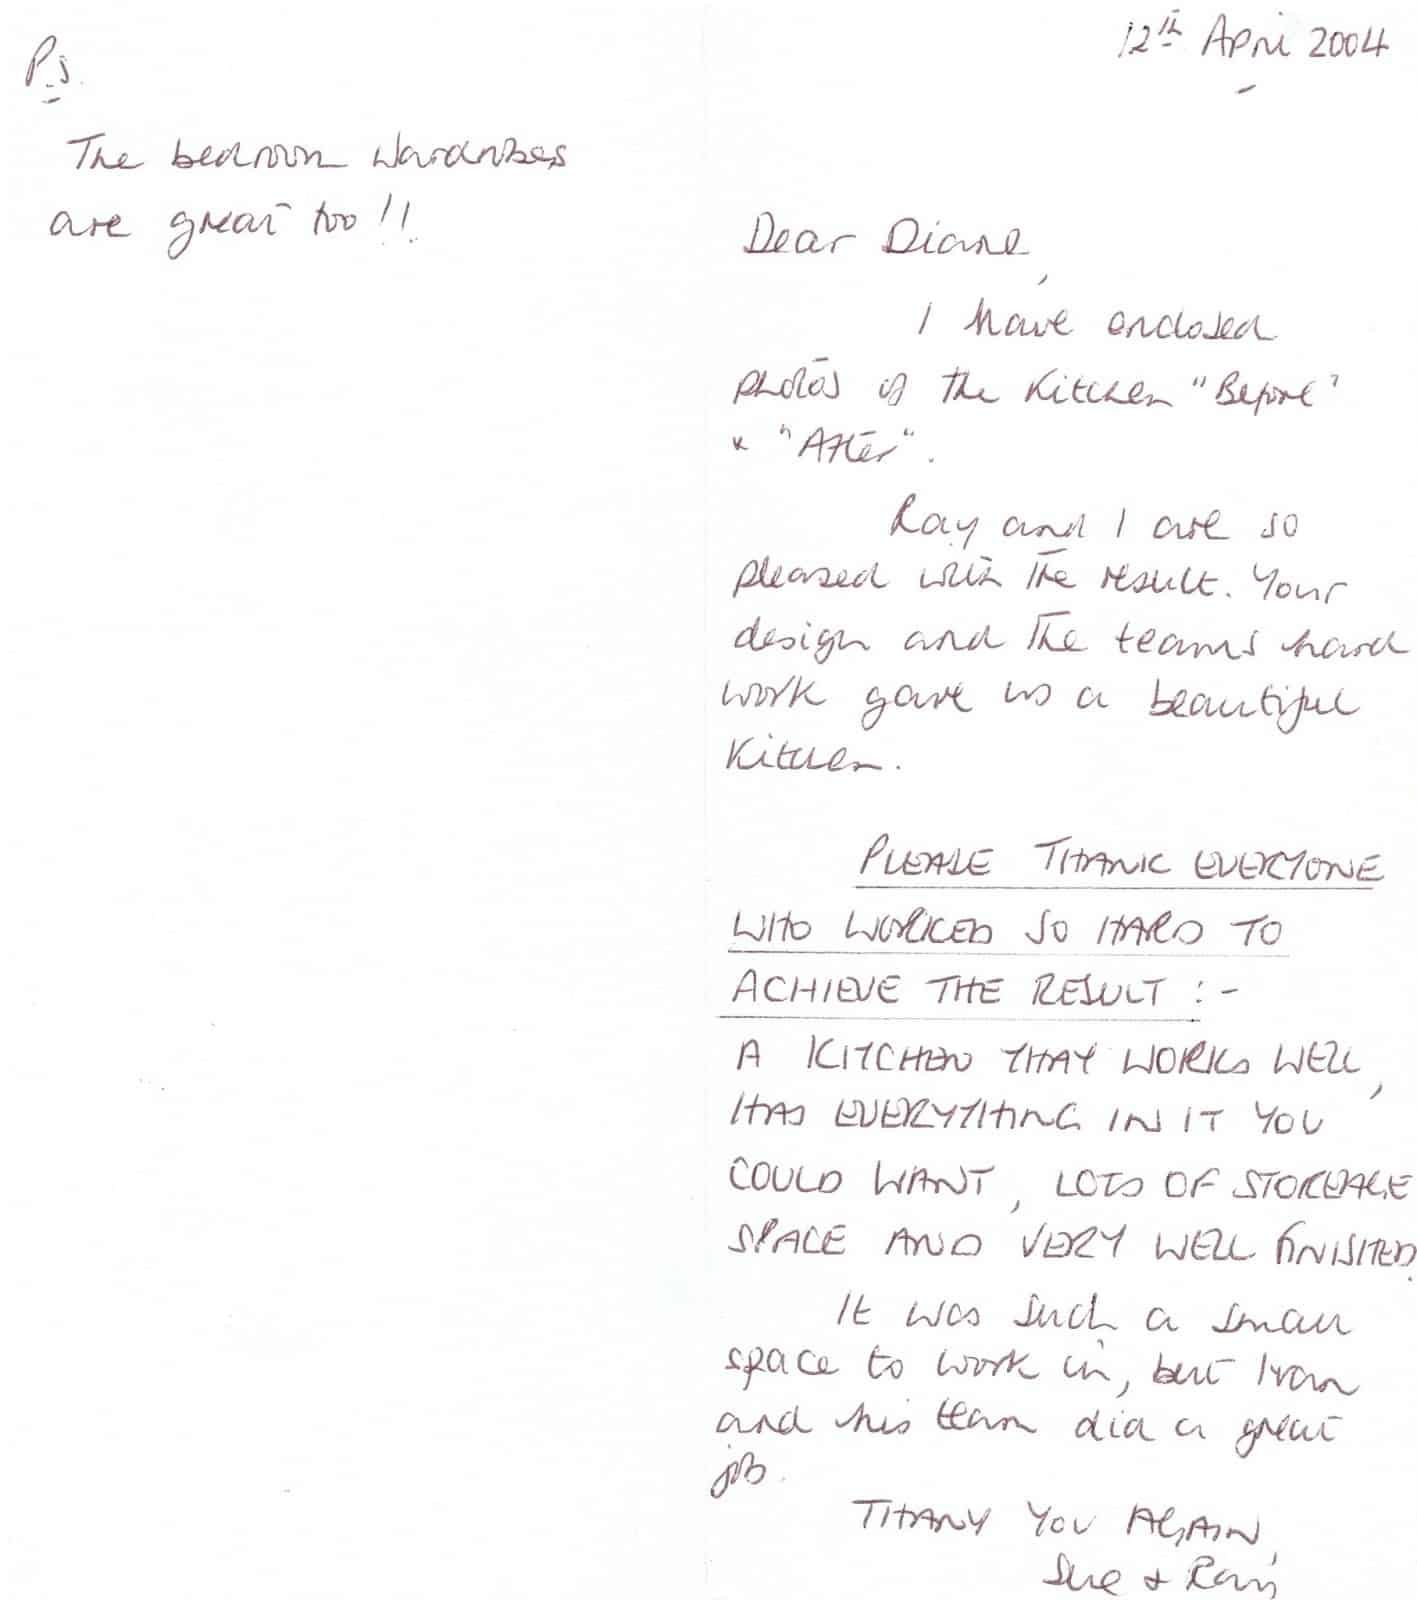 12th April 2004
Dear Diane,
I have enclosed
photos of the Kitchen "Before"
& "After".
Ray and I are so
pleased with the result. Your
design and the teams hard
work gave us a beautiful
Kitchen.
PLEASE THANK EVERYONE
WHO WORKED SO HARD TO
ACHIEVE THE RESULT :-
A KITCHEN THAT WORKS WELL,
HAS EVERYTHING IN IT YOU
COULD WANT, LOTS OF STOREAGE
SPACE AND VERY WELL FINISHED.
It was such a small
space to work in, but Ivan
and his team did a great
job.
THANK YOU AGAIN,
Sue & Ray
P.S.
The bedroom wardrobes
are great too!!